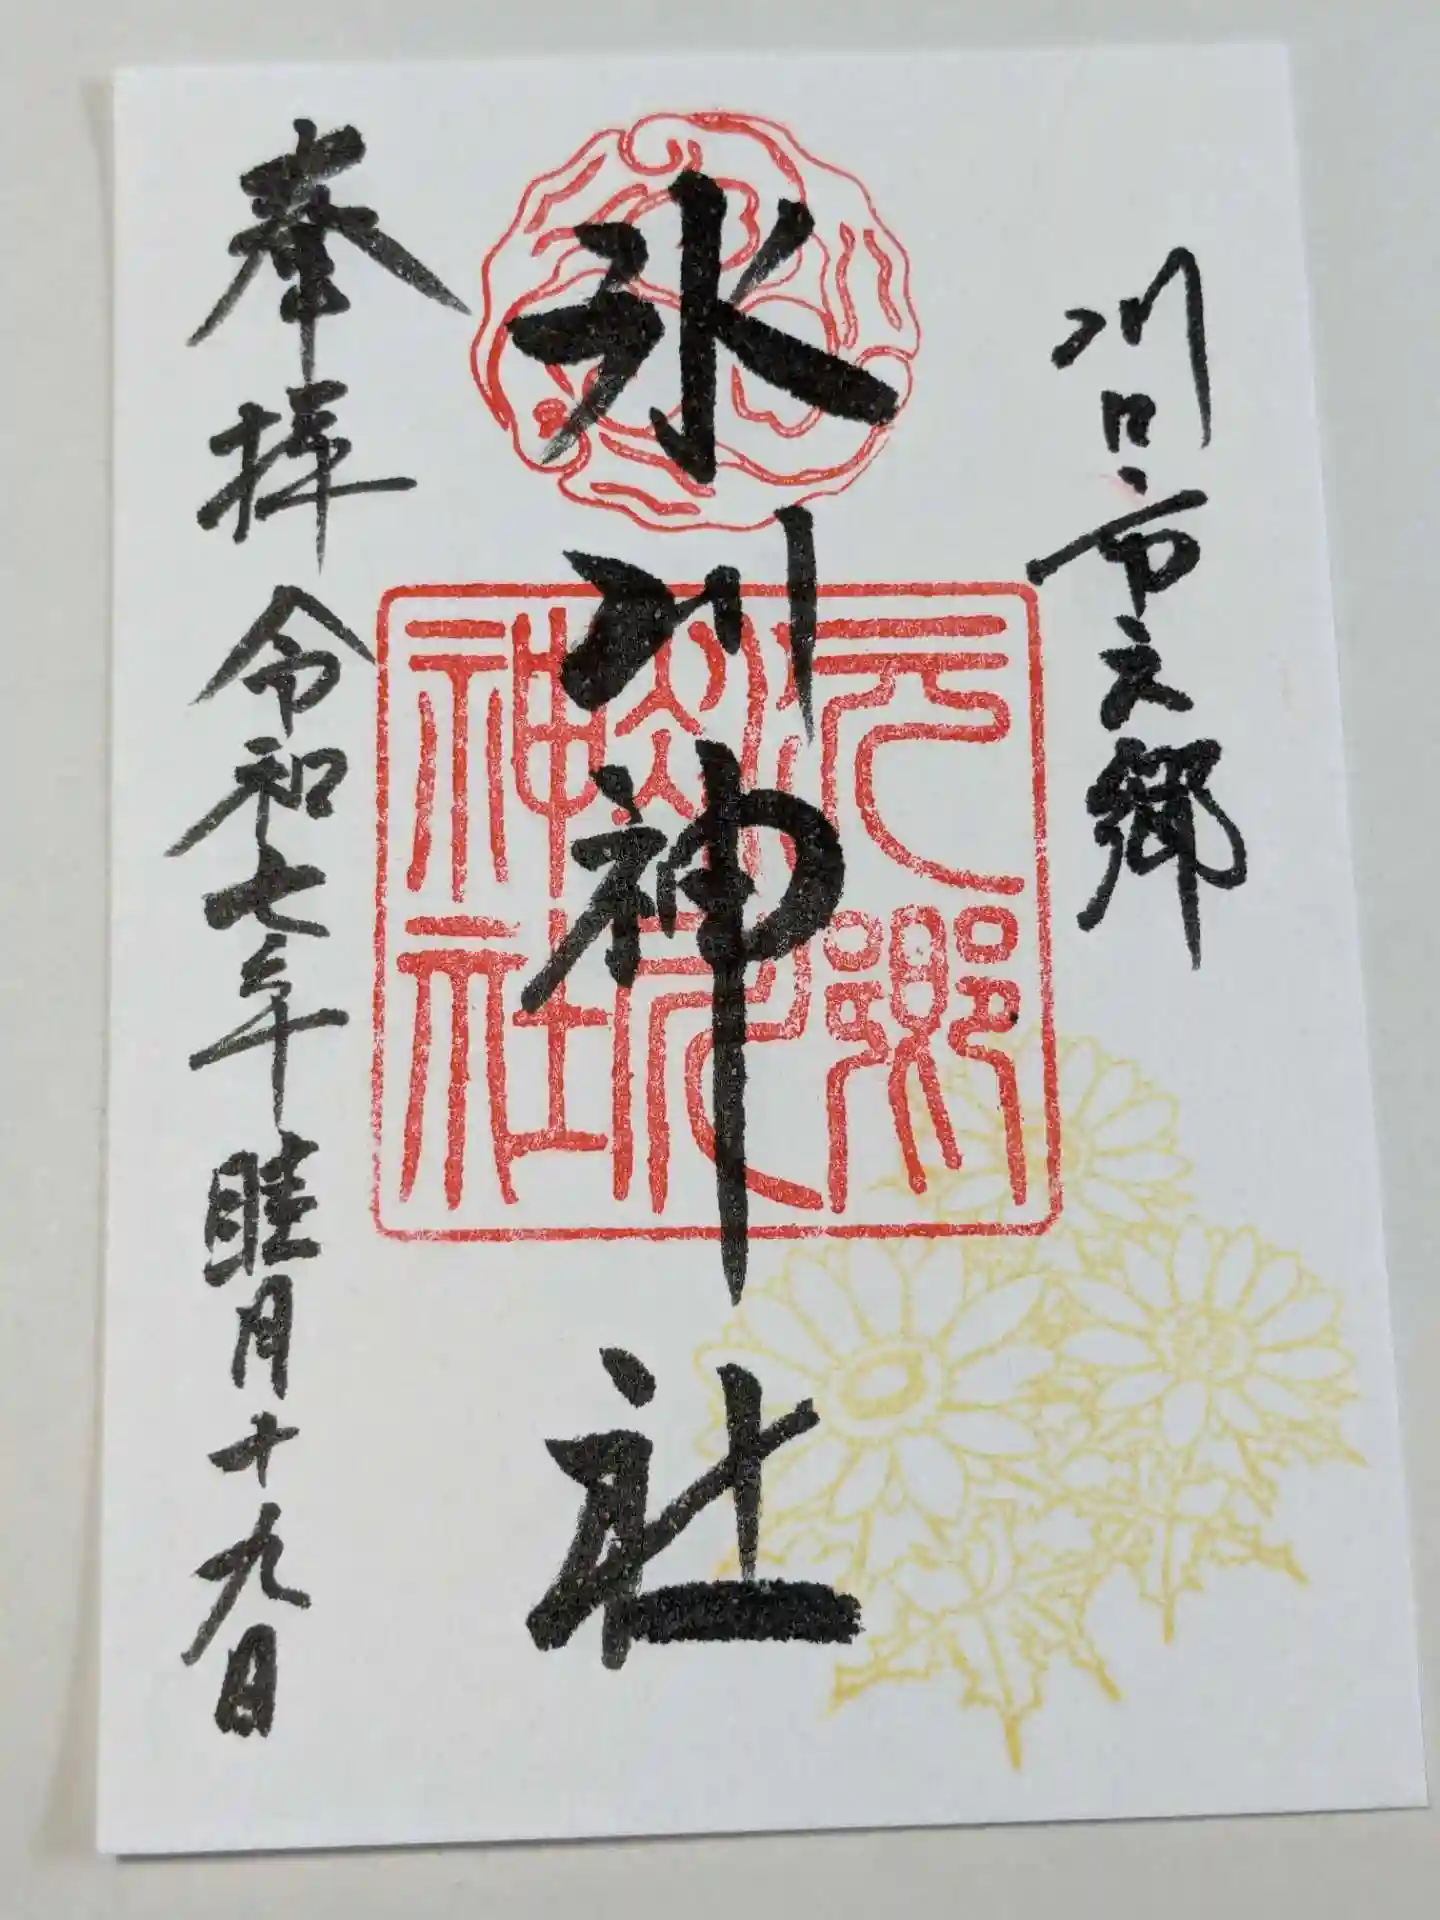 川口市元郷
氷川神社
奉拝 令和七年睦月十九日
元郷
氷川
神社